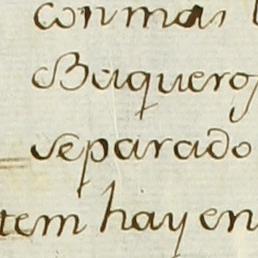 con mas
Baqueros
separado
tem hay en